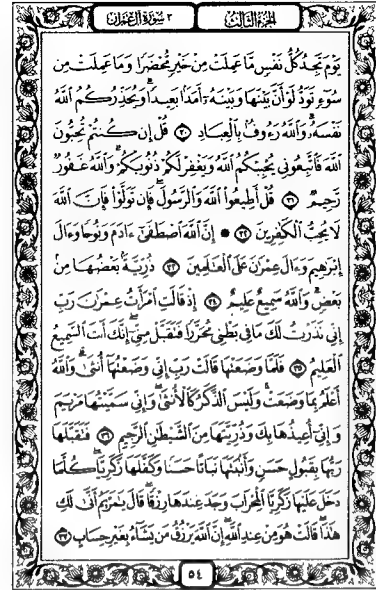 الجزء الثالث ٣ سورة آل عمران
يَوْمَ تَجِدُ كُلُّ نَفْسٍ مَّا عَمِلَتْ مِنْ خَيْرٍ مُّحْضَرًا وَمَا عَمِلَتْ مِن
سُوٓءٍ تَوَدُّ لَوْ أَنَّ بَيْنَهَا وَبَيْنَهُۥٓ أَمَدًۢا بَعِيدًا ۗ وَيُحَذِّرُكُمُ ٱللَّهُ
نَفْسَهُۥ ۗ وَٱللَّهُ رَءُوفٌۢ بِٱلْعِبَادِ ٣٠ قُلْ إِن كُنتُمْ تُحِبُّونَ
ٱللَّهَ فَٱتَّبِعُونِى يُحْبِبْكُمُ ٱللَّهُ وَيَغْفِرْ لَكُمْ ذُنُوبَكُمْ ۗ وَٱللَّهُ غَفُورٌ
رَّحِيمٌ ٣١ قُلْ أَطِيعُوا۟ ٱللَّهَ وَٱلرَّسُولَ ۖ فَإِن تَوَلَّوْا۟ فَإِنَّ ٱللَّهَ
لَا يُحِبُّ ٱلْكَٰفِرِينَ ٣٢ ۞ إِنَّ ٱللَّهَ ٱصْطَفَىٰٓ ءَادَمَ وَنُوحًا وَءَالَ
إِبْرَٰهِيمَ وَءَالَ عِمْرَٰنَ عَلَى ٱلْعَٰلَمِينَ ٣٣ ذُرِّيَّةًۢ بَعْضُهَا مِنۢ
بَعْضٍ ۗ وَٱللَّهُ سَمِيعٌ عَلِيمٌ ٣٤ إِذْ قَالَتِ ٱمْرَأَتُ عِمْرَٰنَ رَبِّ
إِنِّى نَذَرْتُ لَكَ مَا فِى بَطْنِى مُحَرَّرًا فَتَقَبَّلْ مِنِّىٓ ۖ إِنَّكَ أَنتَ ٱلسَّمِيعُ
ٱلْعَلِيمُ ٣٥ فَلَمَّا وَضَعَتْهَا قَالَتْ رَبِّ إِنِّى وَضَعْتُهَآ أُنثَىٰ وَٱللَّهُ
أَعْلَمُ بِمَا وَضَعَتْ وَلَيْسَ ٱلذَّكَرُ كَٱلْأُنثَىٰ ۖ وَإِنِّى سَمَّيْتُهَا مَرْيَمَ
وَإِنِّىٓ أُعِيذُهَا بِكَ وَذُرِّيَّتَهَا مِنَ ٱلشَّيْطَٰنِ ٱلرَّجِيمِ ٣٦ فَتَقَبَّلَهَا
رَبُّهَا بِقَبُولٍ حَسَنٍ وَأَنۢبَتَهَا نَبَاتًا حَسَنًا وَكَفَّلَهَا زَكَرِيَّا ۖ كُلَّمَا
دَخَلَ عَلَيْهَا زَكَرِيَّا ٱلْمِحْرَابَ وَجَدَ عِندَهَا رِزْقًا ۖ قَالَ يَٰمَرْيَمُ أَنَّىٰ لَكِ
هَٰذَا ۖ قَالَتْ هُوَ مِنْ عِندِ ٱللَّهِ ۖ إِنَّ ٱللَّهَ يَرْزُقُ مَن يَشَآءُ بِغَيْرِ حِسَابٍ ٣٧
٥٤